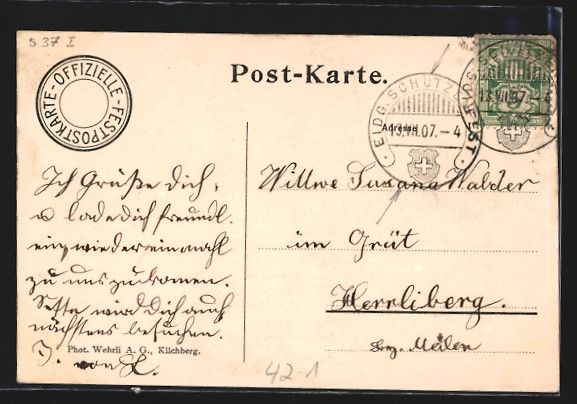 S 37 I
OFFIZIELLE-FESTPOSTKARTE
Post-Karte.
EIDG. SCHÜTZENFEST
Adresse
VII.07.-4
Ich Grüße Dich,
u lade Dich freundl.
ein, wieder einmahl
zu uns zu komen.
wird Dich auch
nächstens besuchen.
Phot. Wehrli A. G., Kilchberg.
Witwe Susana Walder
im Grüt
Herrliberg.
Bez. Meilen
42-1